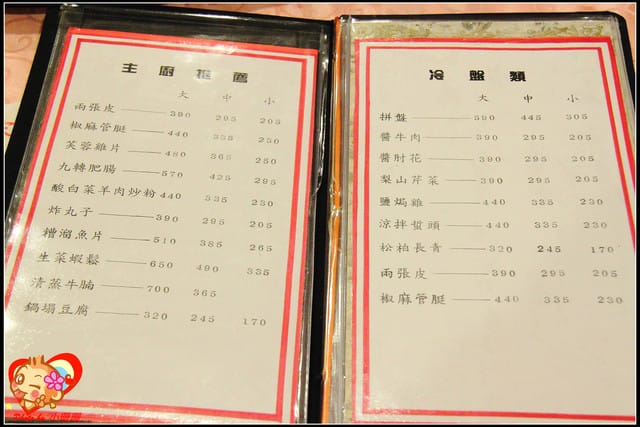 主廚推薦
大 中 小
兩張皮 390 295 205
椒麻管挺 440 335 230
芙蓉雞片 480 365 250
九轉肥腸 570 425 295
酸白菜羊肉炒粉 440 335 230
炸丸子 390 295 205
糟溜魚片 510 385 265
生菜蝦鬆 650 490 335
清蒸牛腩 700 365
鍋塌豆腐 320 245 170
冷盤類
大 中 小
拼盤 590 445 305
醬牛肉 390 295 205
醬肘花 390 295 205
梨山芹菜 390 295 205
鹽焗雞 440 335 230
涼拌蜇頭 440 335 230
松柏長青 320 245 170
兩張皮 390 295 205
椒麻管挺 440 335 230